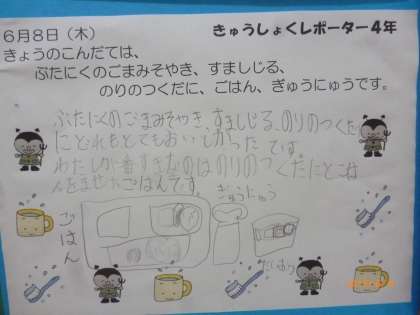 6月8日（木）
きゅうしょくレポーター4年
きょうのこんだては、
ぶたにくのごまみそやき、すましじる、
のりのつくだに、ごはん、ぎゅうにゅうです。
ぶたにくのごまみそやき、すましじる、のりのつくだ
にどれもとてもおいしかったです。
わたしが一番すきなのはのりのつくだにと
ごはんです。
ぎゅうにゅう
ごはん